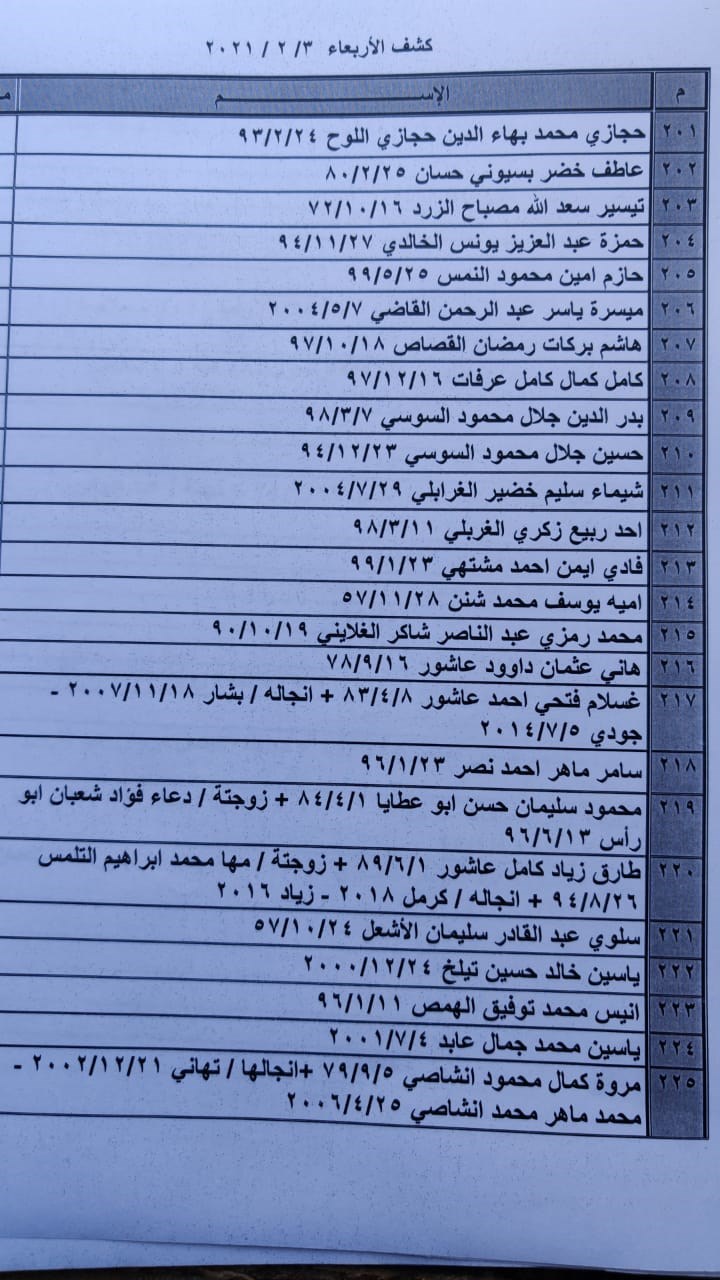 كشف الأربعاء ٣/ ٢ / ٢٠٢١
م الإســـــــــم
٢٠١ حجازي محمد بهاء الدين حجازي اللوح ٩٣/٢/٢٤
٢٠٢ عاطف خضر بسيوني حسان ٨٠/٢/٢٥
٢٠٣ تيسير سعد الله مصباح الزرد ٧٢/١٠/١٦
٢٠٤ حمزة عبد العزيز يونس الخالدي ٩٤/١١/٢٧
٢٠٥ حازم امين محمود النمس ٩٩/٥/٢٥
٢٠٦ ميسرة ياسر عبد الرحمن القاضي ٢٠٠٤/٥/٧
٢٠٧ هاشم بركات رمضان القصاص ٩٧/١٠/١٨
٢٠٨ كامل كمال كامل عرفات ٩٧/١٢/١٦
٢٠٩ بدر الدين جلال محمود السوسي ٩٨/٣/٧
٢١٠ حسين جلال محمود السوسي ٩٤/١٢/٢٣
٢١١ شيماء سليم خضير الغرابلي ٢٠٠٤/٧/٢٩
٢١٢ احد ربيع زكري الغربلي ٩٨/٣/١١
٢١٣ فادي ايمن احمد مشتهي ٩٩/١/٢٣
٢١٤ اميه يوسف محمد شنن ٥٧/١١/٢٨
٢١٥ محمد رمزي عبد الناصر شاكر الغلاييني ٩٠/١٠/١٩
٢١٦ هاني عثمان داوود عاشور ٧٨/٩/١٦
٢١٧ غسلام فتحي احمد عاشور ٨٣/٤/٨ + انجاله / بشار ٢٠٠٧/١١/١٨ -
جودي ٢٠١٤/٧/٥
٢١٨ سامر ماهر احمد نصر ٩٦/١/٢٣
٢١٩ محمود سليمان حسن ابو عطايا ٨٤/٤/١ + زوجتة / دعاء فؤاد شعبان ابو
رأس ٩٦/٦/١٣
٢٢٠ طارق زياد كامل عاشور ٨٩/٦/١ + زوجتة / مها محمد ابراهيم التلمس
٩٤/٨/٢٦ + انجاله / كرمل ٢٠١٨ - زياد ٢٠١٦
٢٢١ سلوي عبد القادر سليمان الأشعل ٥٧/١٠/٢٤
٢٢٢ ياسين خالد حسين تيلخ ٢٠٠٠/١٢/٢٤
٢٢٣ انيس محمد توفيق الهمص ٩٦/١/١١
٢٢٤ ياسين محمد جمال عابد ٢٠٠١/٧/٤
٢٢٥ مروة كمال محمود انشاصي ٧٩/٩/٥ +انجالها / تهاني ٢٠٠٢/١٢/٢١ -
محمد ماهر محمد انشاصي ٢٠٠٦/٤/٢٥